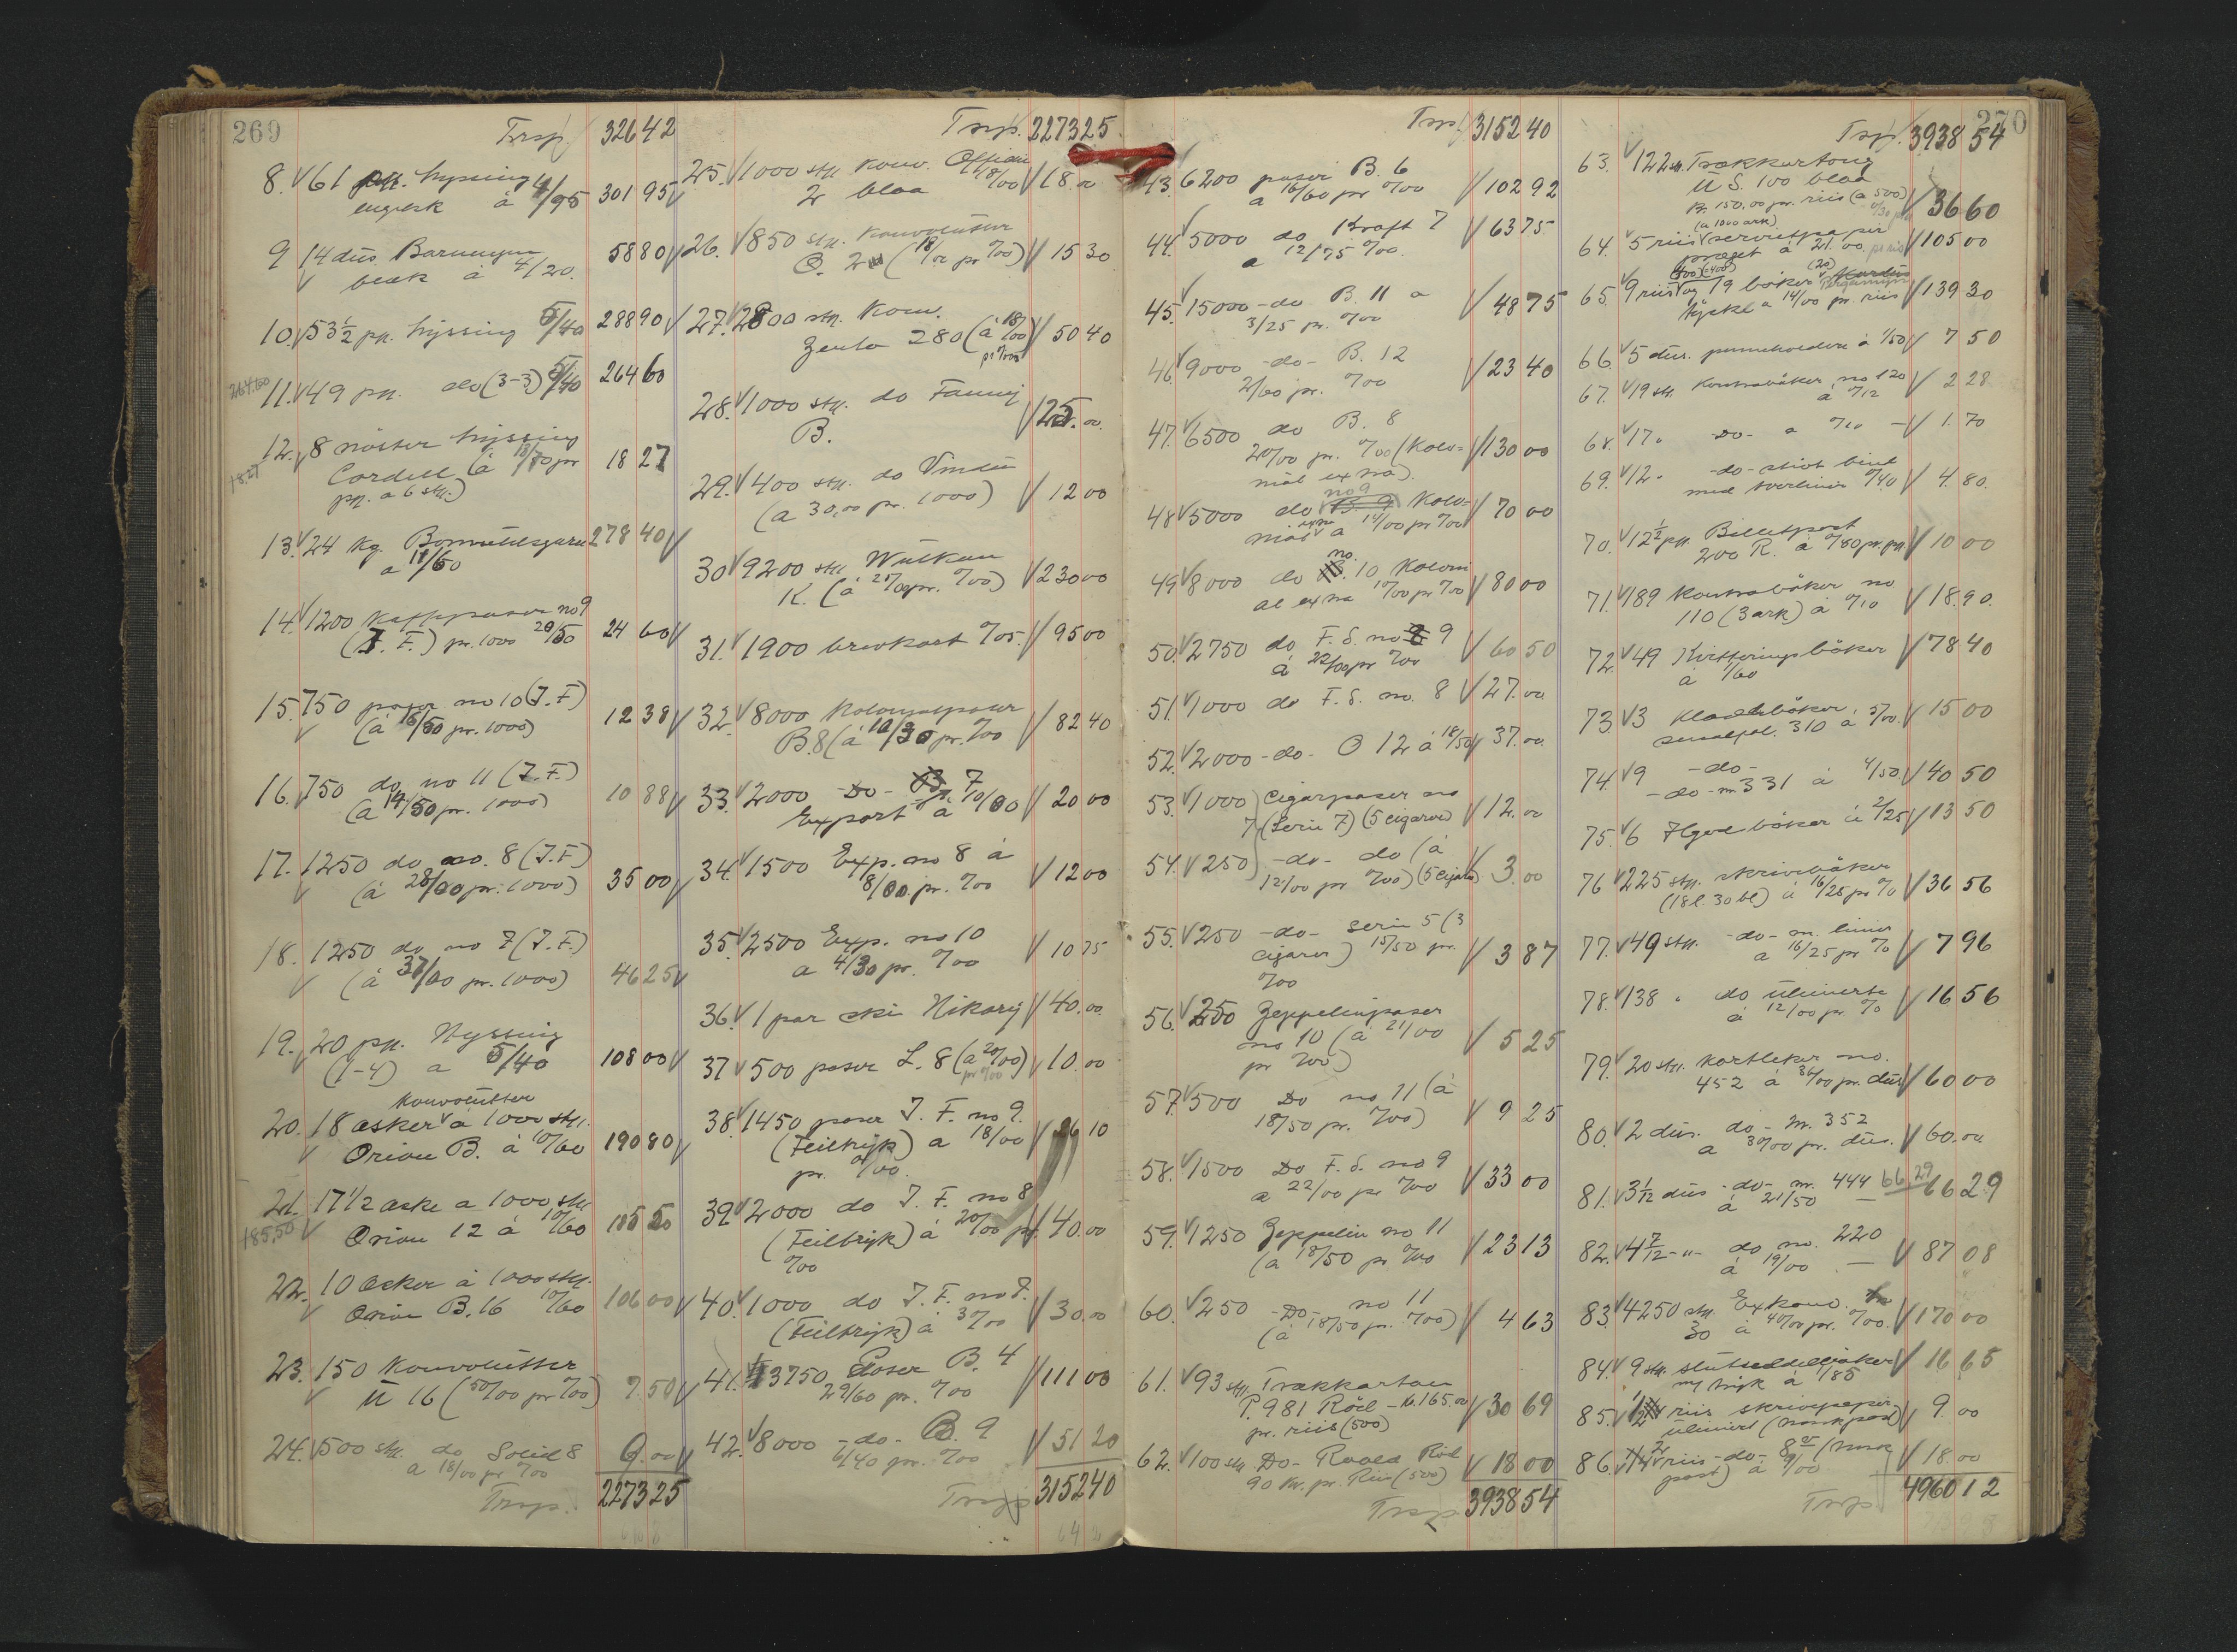 269
Trsp. 32642
8. 61 pk. hyssing
engelsk à 4/95 301 95
9 14 dus. Barnegarn
blek à 4/20. 58 80
10. 53 1/2 pk. hyssing 5/40 288 90
264.60
11. 49 pk. do (3-3) 5/40 264 60
12. 8 nöster hyssing
18.27
Cordell (à 18/70 pr 18 27
pk. a 6 stk.)
13. 24 kg. Bomuldsgarn 278 40
a 11/60
14. 1200 Kaffeposer no 9
(J. F.) pr. 1000 20/50 24 60
15. 750 poser no 10 (J. F.)
(à 16/50 pr. 1000) 12 38
16. 750 do no 11 (J. F.)
(à 14/50 pr. 1000) 10 88
17. 1250 do no. 8 (J. F.)
(à 28/00 pr. 1000) 35 00
18. 1250 do no 7 (J. F.)
(à 37/00 pr. 1000) 46 25
19. 20 pk. Hyssing
(1-4) a 5/40 108 00
Konvolutter
20. 18 æsker à 1000 stk.
Orion B. à 10/60 190 80
21. 17 1/2 æske a 1000 stk
185.50
Orion 12 à 10/60 185 50
22. 10 æsker à 1000 stk.
Orion B. 16 10/60 106 00
23. 150 Konvolutter
U 16 (50/00 pr %00) 7.50
24. 500 stk. do Solid 8
a 18/00 pr %00 9.00
Trsp. 2273 25
Trsp. 2273 25
25. 1000 stk konv. Officin
2 blaa 18/%00 18.00
26. 850 stk. Konvolutter
O. 2 (18/00 pr %00) 15 30
27. 2800 stk. Konv.
Zenta 280 (à 18/00 50 40
pr %00)
28. 1000 stk. do Fanny
B. 25.00
29. 400 stk. do Vindu
(a 30,00 pr. 1000) 12 00
30 9200 stk Wulkan
K. (à 25/00 pr. %00) 230 00
31. 1900 brevkort %05. 95 00
32. 8000 Kolonialposer
B. 8 (à 10/30 pr. %00 82 40
33. 2000 -Do- 7
Export à 10/00 20 00
34. 1500 Exp. no 8 à
8/00 pr. %00 12 00
35. 2500 Exp. no 10
a 4/30 pr. %00 10 75
36. 1 par ski Hikory 40.00
37 500 poser L. 8 (a 20/00) 10.00
pr %00
38. 1450 poser J. F. no 9.
(Feiltryk) a 18/00 26 10
pr. %00.
39. 2000 do J. F. no 8
(Feiltryk) à 20/00 pr. 40.00
%00
40. 1000 do J. F. no 7.
(Feiltryk) à 30/00 30.00
41. 3750 Poser B. 4
29/60 pr. %00 111 00
42. 8000 -do- B. 9
6/40 pr. %00 51 20
Trsp 3152 40
Trsp. 3152 40
43. 6200 poser B. 6
a 16/60 pr %00 102 92
44. 5000 do Kraft 7
a 12/75 %00. 63 75
45. 15000 -do- B. 11 a
3/25 pr. %00 48 75
46. 9000 -do- B. 12
2/60 pr. %00 23 40
47. 6500 do B. 8
20/00 pr. %00 (Kolo= 130 00
nial extra).
no 9
48 5000 do Kolo=
nial extra a 14/00 pr %00 70 00
49 8000 do no. 10 Koloni
al extra 10/00 pr %00 80 00
50. 2750 do F. S. no 9
à 22/00 pr %00 60 50
51. 1000 do F. S. no. 8 27.00
52. 2000 -do- O 12 à 18/50 37.00
53. 1000 Cigarposer no
7 (Serie 7) (5 cigarer) 12.00
54. 250 -do- do (à
12/00 pr %00) (5 cigarer) 3.00
55. 250 -do- serie 5 (3
cigarer) 15/50 pr. 3 87
%00
56. 250 Zeppelinposer
no 10 (à 21/00
pr %00) 5 25
57. 500 Do no 11 (à
18/50 pr. %00) 9 25
58. 1500 Do F. S. no 9
a 22/00 pr %00 33 00
59. 1250 Zeppelin no 11
(a 18/50 pr %00 23 13
60. 250 -Do- no 11
(à 18/50 pr. %00) 4 63
61. 93 stk. Trækkarton
P. 981 Röd - Kr. 165.00 30 69
pr. riis (500)
62. 100 stk Do- Roald Röd
90 Kr. pr. Riis (500) 18 00
Trsp. 3938 54
270
Trsp. 3938 54
63. 122 stk Trækkartong
U S. 100 blaa
Kr. 150.00 pr. riis (a 500) 36 60
(a 1000 ark)
64. 5 riis servietpapir
præget à 21.00 pr riis 105 00
(400) (20)
65. 9 riis og 19 böker Pergamyn
tykke a 14/00 pr. riis 139 30
66. 5 dus. penneholdere à 1/50 7 50
67. 19 stk. Kontrabøker no 120
à %12 2 28
68. 17. -Do- a %10 - 1.70
69. 12. -do- stivt bind
med tverlinier %40 4.80.
70. 12 1/2 pk. Billetpost
200 R. à %80 pr. pk 10 00
71. 189 Kontrabøker no
110 (3 ark) à %10 18.90.
72. 49 Kvitteringsbøker
à 1/60 78 40
73. 3 Kladdebøker
smalfol. 310 à 5/00. 15 00
74. 9 -do-
-do- m. 331 à 4/50 40 50
75. 6 Hgodsbøker à 2/25 13 50
76 225 stk. skrivebøker
(18 l. 30 bl) à 16/25 pr % 36 56
77. 49 stk. -do- m. linier
a 16/25 pr % 7 96
78. 138 " do ulinierte
à 12/00 pr. % 16 56
79. 20 stk. Kortleker no.
452 à 36/00 pr. dus 60 00
80. 2 dus. do- m. 352
a 30/00 pr. dus. 60.00
81. 3 1/12 dus -do- nr. 444 66 29 66 29
à 21/50
82. 4 7/12 -"- do no. 220
à 19/00 87 08
83. 4250 stk. Ex. konv.
30 à 40/00 pr. %00. 170 00
84. 9 stk. slutseddelbøker
ny tryk à 1/85 16 65
85. 1/2 riis skrivepapir
ulinieret (bankpost) 9.00
86. 2 riis -do- 8
post) à 9/00 18.00
Trsp. 4960 12